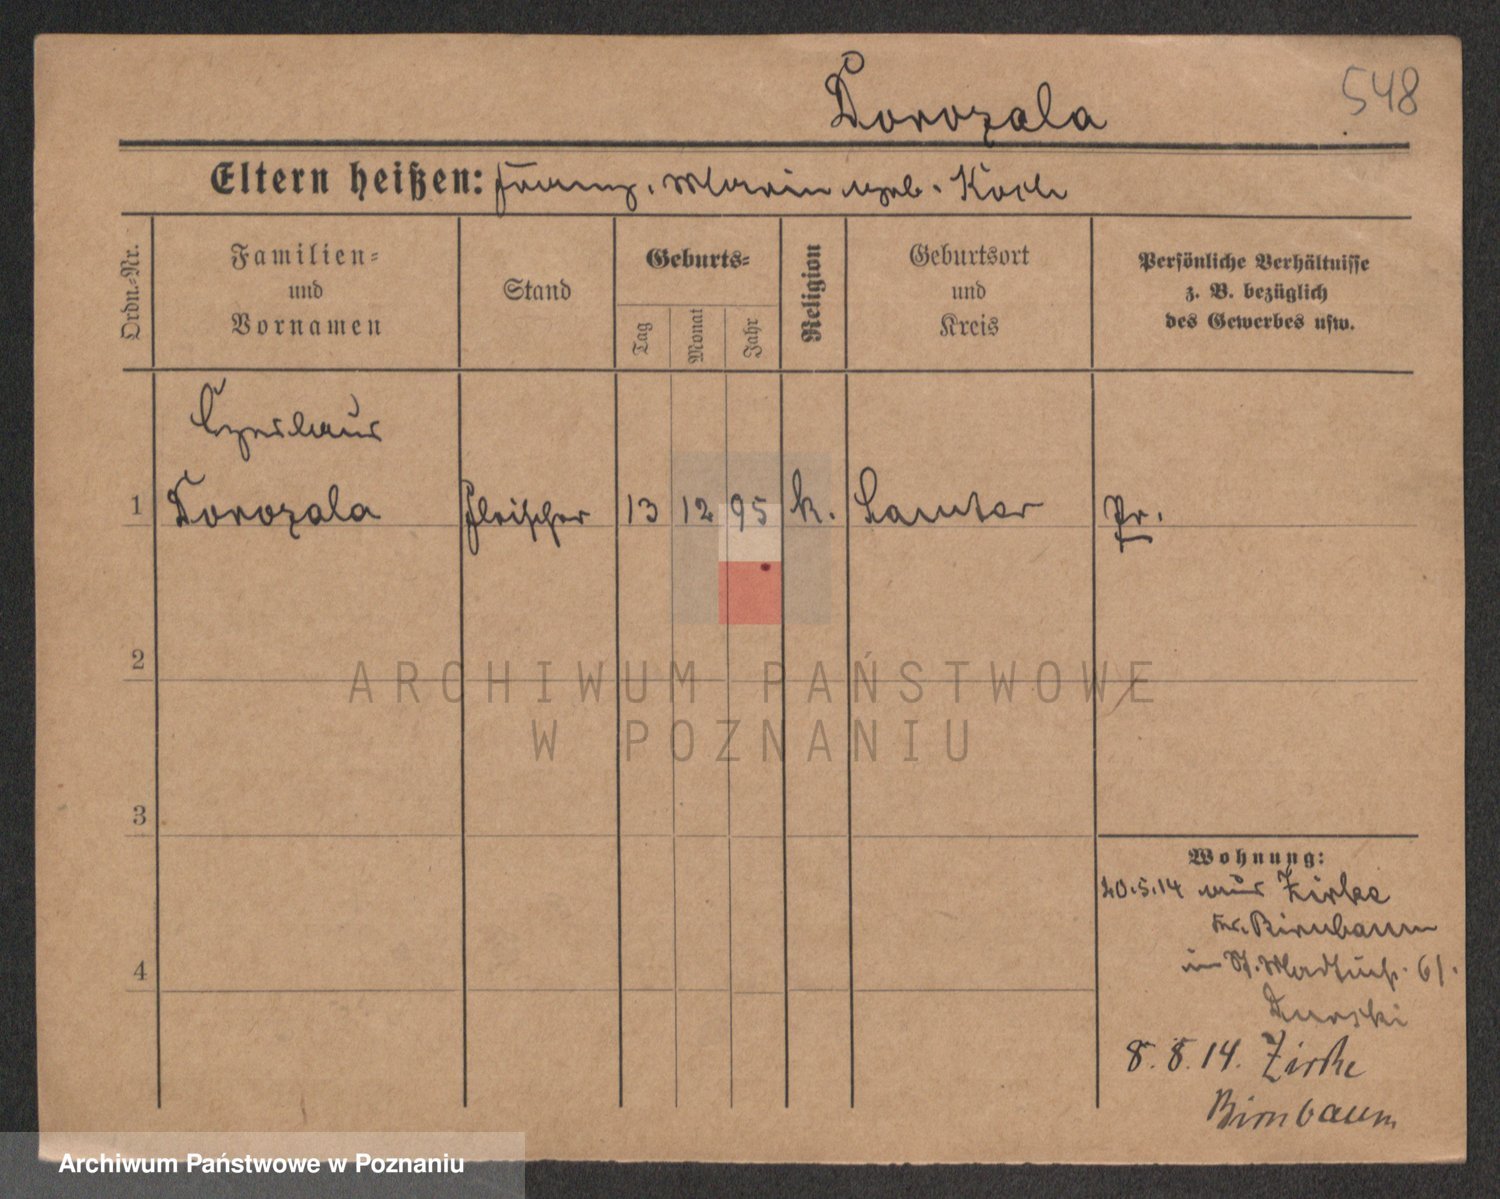 Dorozala
548
Eltern heißen: Franz, Marin geb. Koch
Ordn.-Nr.
Familien-
und
Vornamen
Stand
Geburts-
Tag
Monat
Jahr
Religion
Geburtsort
und
Kreis
Persönliche Verhältnisse
z. B. bezüglich
des Gewerbes usw.
1
Dorozala Fleischer 13 12 95 k. Samter Pr.
2
ARCHIWUM PAŃSTWOWE
W POZNANIU
3
Wohnung:
20.5.14 aus Zirke
Kr. Birnbaum
in St. 61.
Durski
4
8. 8. 14. Zirke
Birnbaum
Archiwum Państwowe w Poznaniu